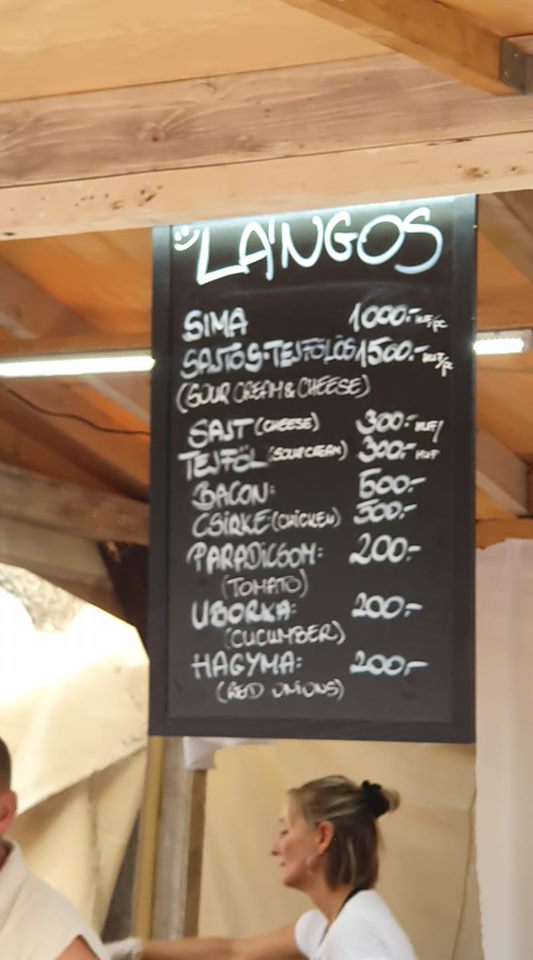 LÁNGOS
SIMA 1000.- HUF/PC
SAJTOS-TEJFÖLÖS 1500.- HUF/PC
(SOUR CREAM & CHEESE)
SAJT (CHEESE) 300.- HUF/
TEJFÖL (SOUR CREAM) 300.- HUF
BACON: 500.-
CSIRKE (CHICKEN) 500.-
PARADICSOM: 200.-
(TOMATO)
UBORKA: 200.-
(CUCUMBER)
HAGYMA: 200.-
(RED ONIONS)